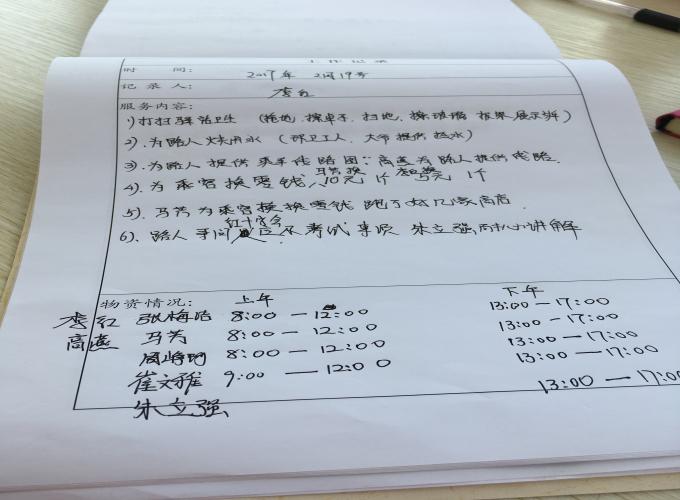 工作记录
时 间： 2019年 2月19号
记 录 人： 李红
服务内容：
1) 打扫驿站卫生 （拖地，擦桌子，扫地，擦玻璃 展示牌）
2). 为路人烧开水 （环卫工人，大爷提供热水）
3). 为路人提供乘车线路图：高燕为路人提供线路.
马芳换
4). 为乘客换零钱、10元1个 5元1个
5). 马芳为乘客换零钱 跑了好几家商店.
红十字会
6). 路人手问 应 考试 朱立强 讲解
物资情况： 上午 下午
李红 张梅 8:00 — 12:00 13:00 — 17:00
高燕 马芳 8:00 — 12:00 13:00 — 17:00
8:00 — 12:00 13:00 — 17:00
崔文雅 9:00 — 12:00 13:00 — 17:00
朱立强 13:00 — 17:00